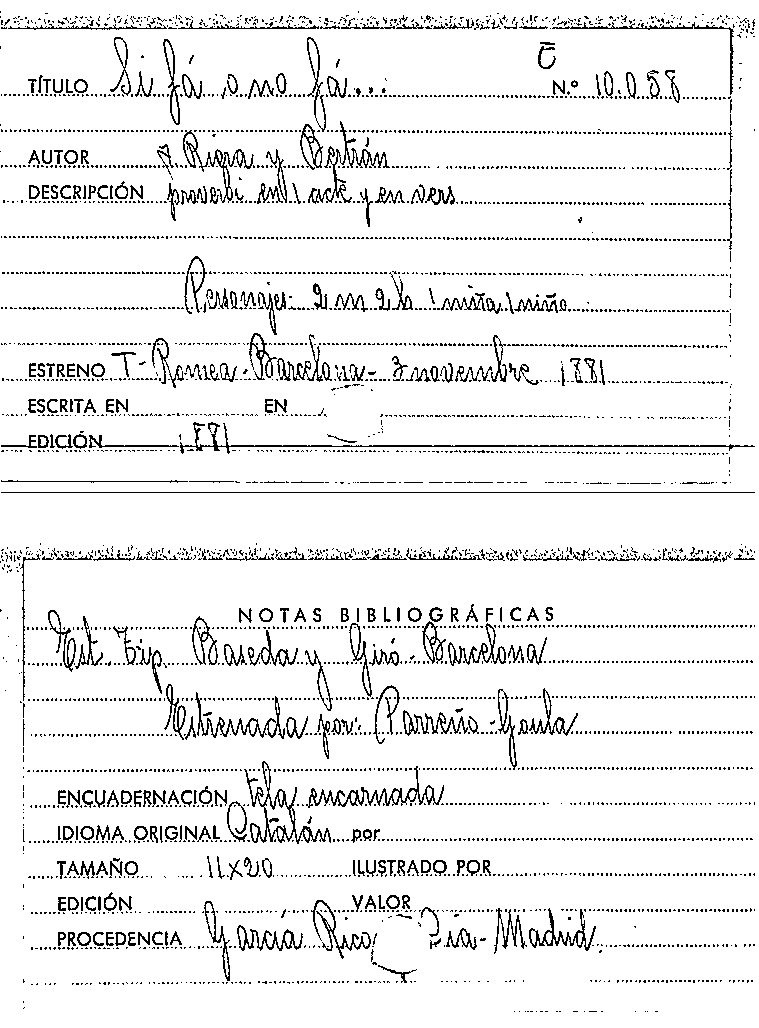 C̄
TÍTULO Si fá o no fá... N.º 10.058
AUTOR J. Riera y Bertrán
DESCRIPCIÓN proverbi en 1 acte y en vers
Personajes: 2 m 2 h 1 niña 1 niño
ESTRENO T- Romea - Barcelona - 3 novembre 1881
ESCRITA EN EN
EDICIÓN 1881
NOTAS BIBLIOGRÁFICAS
Est. Tip. Baseda y Giró - Barcelona
Estrenada por: Parreño - Goula
ENCUADERNACIÓN tela encarnada
IDIOMA ORIGINAL Catalán por
TAMAÑO 11x20 ILUSTRADO POR
EDICIÓN VALOR
PROCEDENCIA García Rico Cía - Madrid.